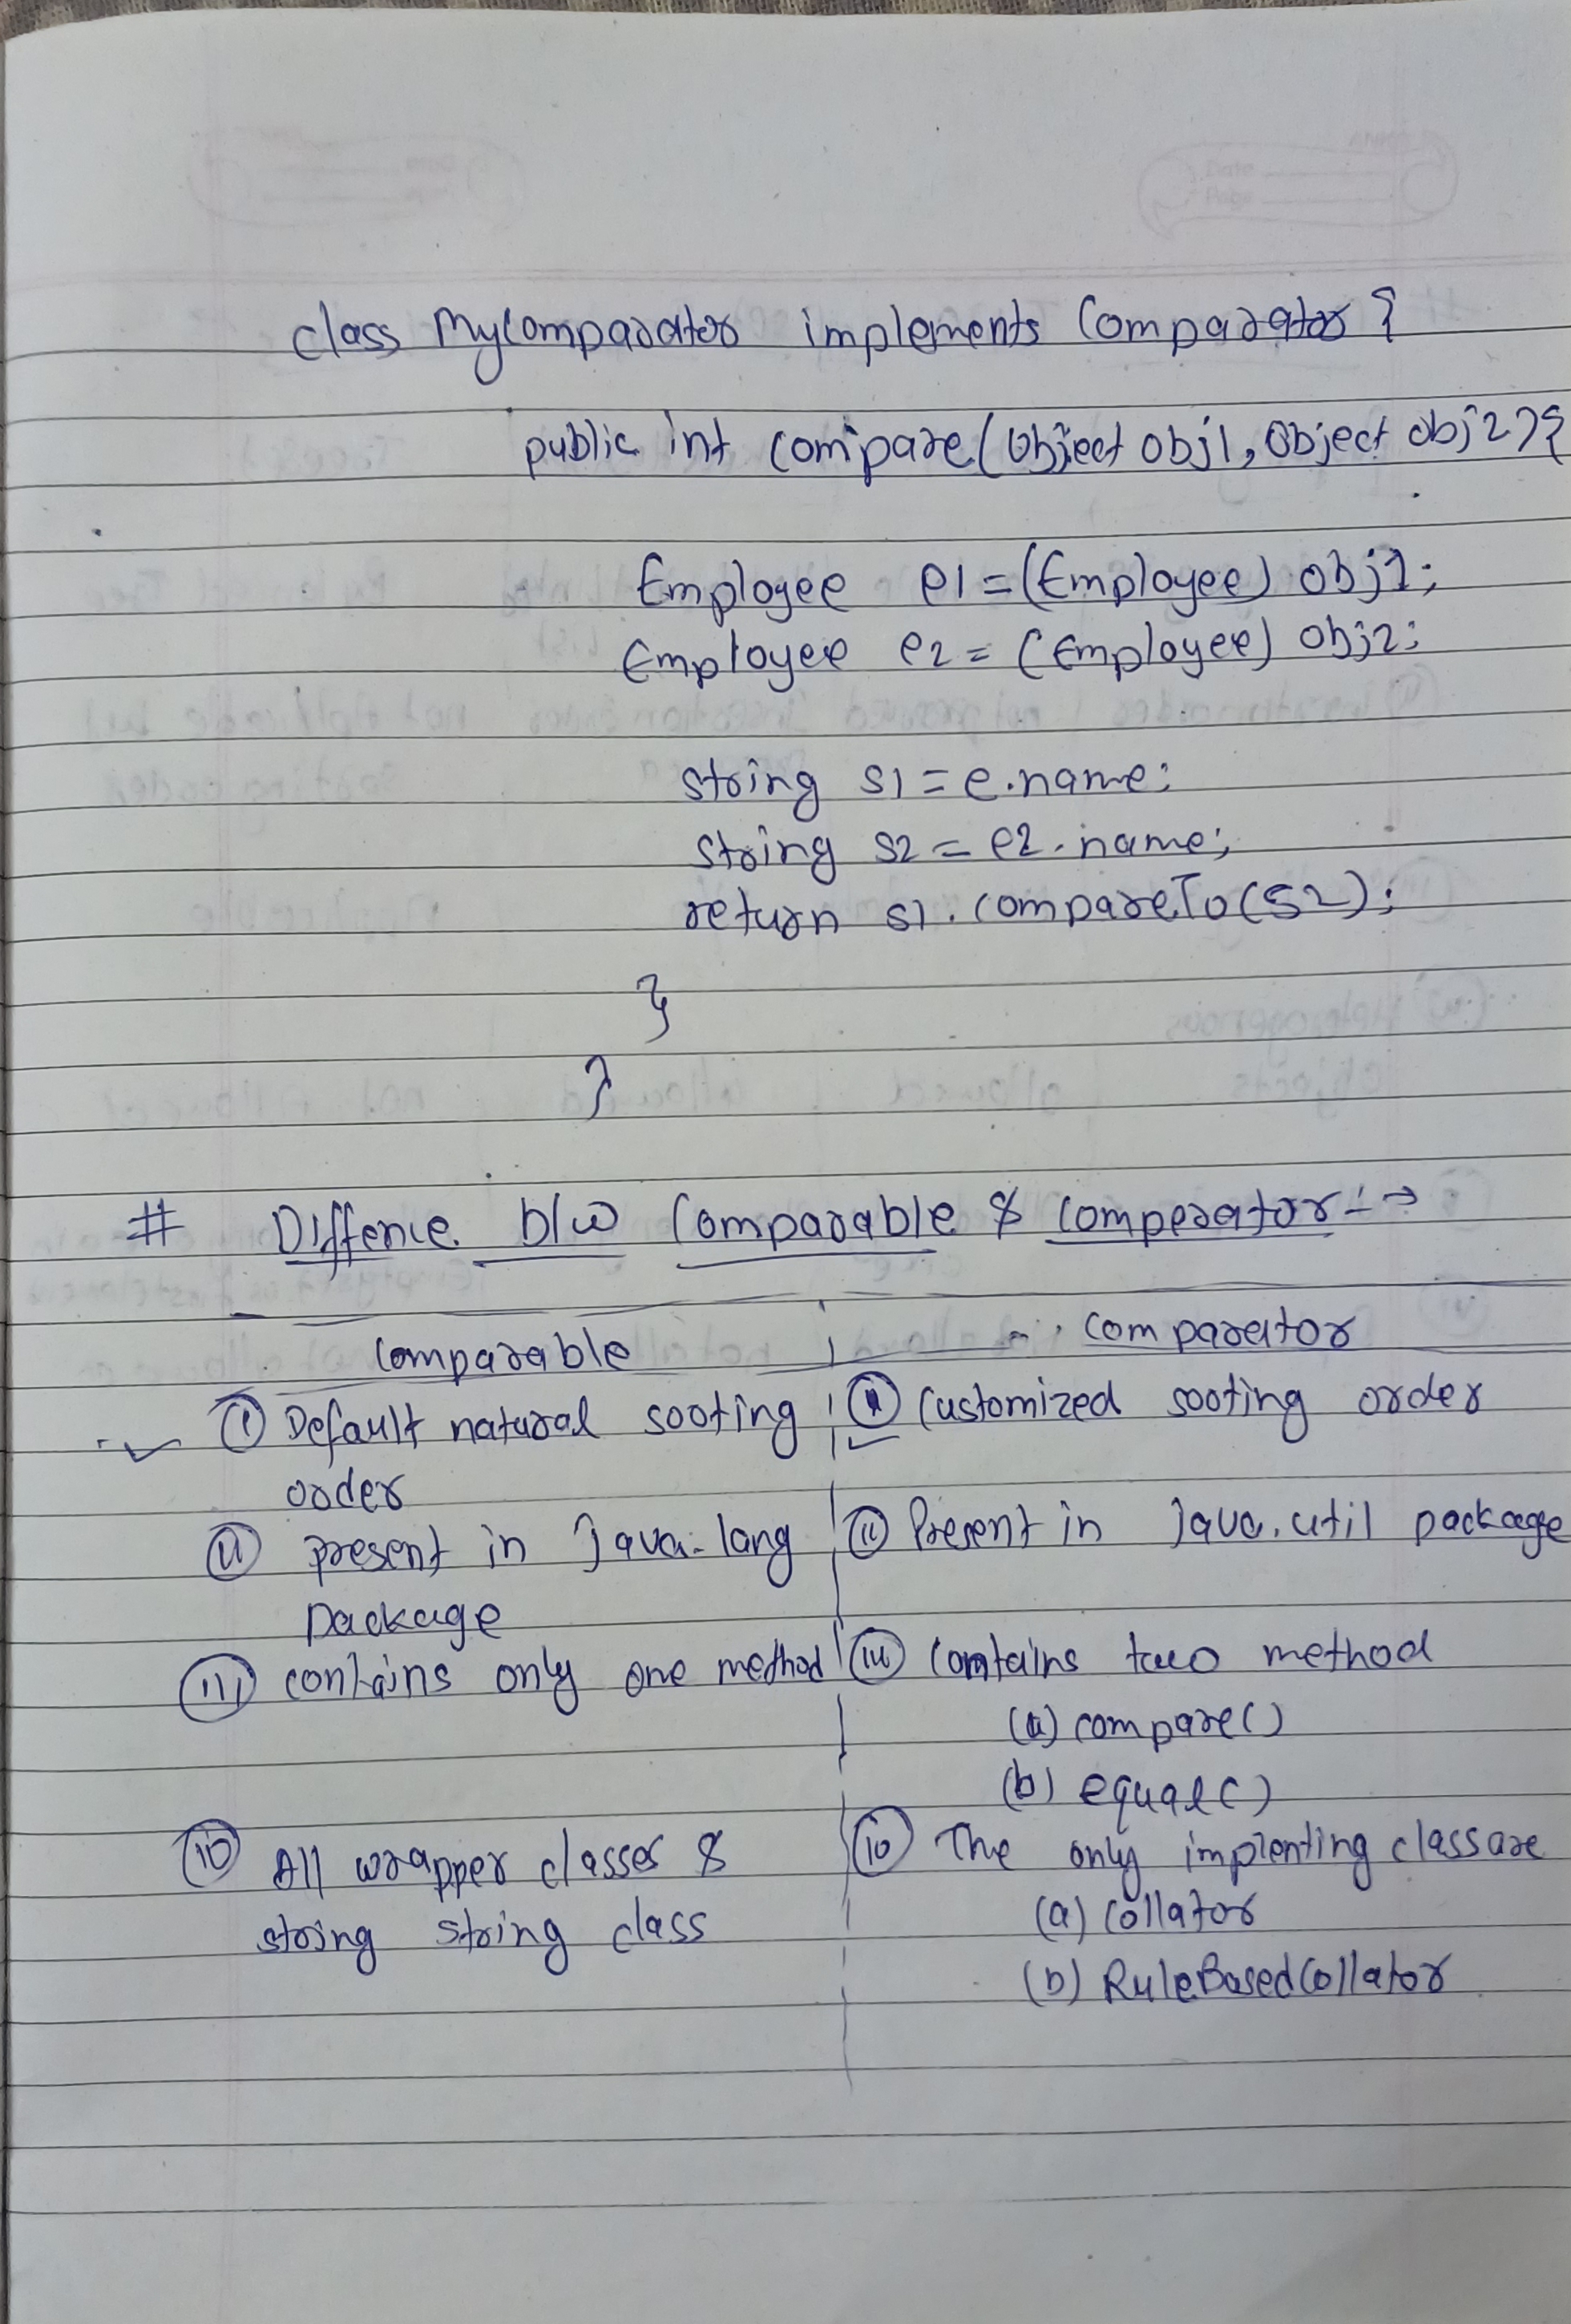 class MyComparator implements Comparator {
public int compare(Object obj1, Object obj2){
Employee e1 = (Employee) obj1;
Employee e2 = (Employee) obj2;
string s1 = e.name;
string s2 = e2.name;
return s1.compareTo(s2);
}
}
# Diffence b/w Comparable & comperator :- →
comparable
comparator
(i) Default natural sorting
order
(i) Customized sorting order
(ii) present in java.lang
package
(ii) Present in java.util package
(iii) contains only one method
(iii) contains two method
(a) compare()
(b) equal()
(iv) All wrapper classes &
string string class
(iv) The only implenting class are
(a) Collator
(b) RuleBasedCollator